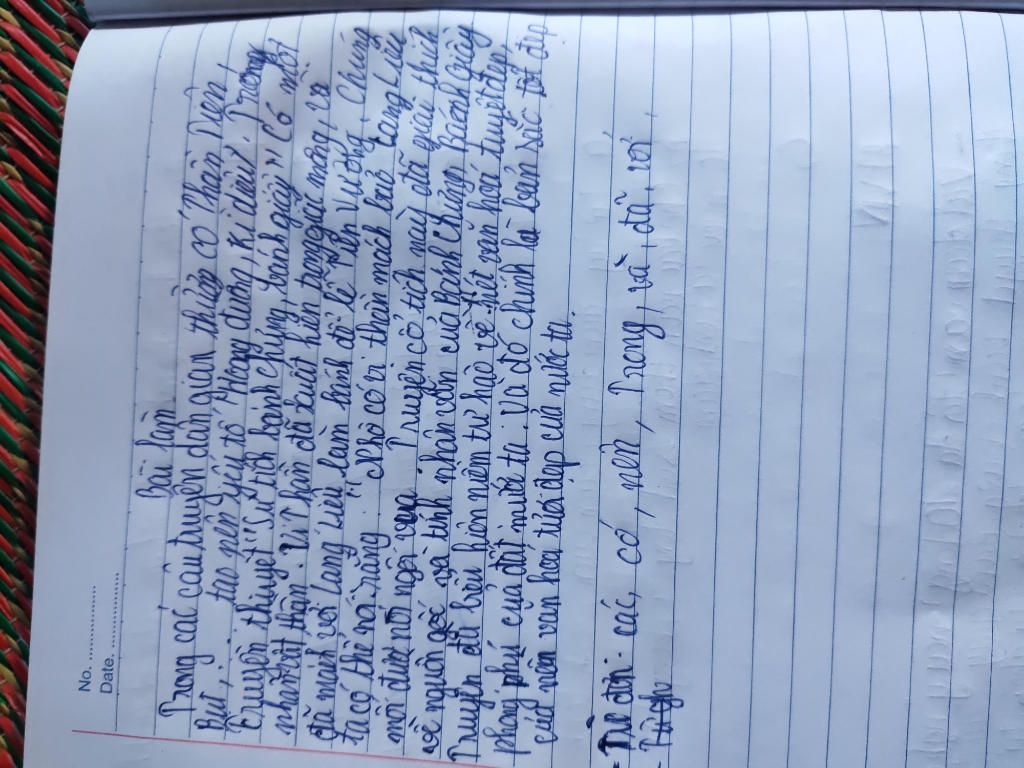 No. ................
Date. ................
bài làm
Trong các câu truyện dân gian thường có Thần, Tiên,
Bụt,... tạo nên yếu tố Hoang đường, Kì diệu. Trong
truyền thuyết "Sự tích bánh chưng, bánh giầy" có một
nhân vật thần. Vị thần đã xuất hiện trong giấc mộng, và
đã mách với Lang Liêu làm bánh để lễ Tiên Vương. Chúng
ta có thể nói rằng "Nhờ có vị thần mách bảo Lang Liêu
mới được nối ngôi vua. Truyện cổ tích này đã giải thích
về nguồn gốc và tính nhân văn của Bánh Chưng, Bánh Giầy
Truyện đã biểu hiện niềm tự hào về nét văn hoá tuyệt đẹp,
phong phú của đất nước ta. Và đó chính là bản sắc tốt đẹp
của nền văn hoá tươi đẹp của nước ta.
- Từ đơn: các, có, nên, Trong, và, đã, với,
- Từ ghép